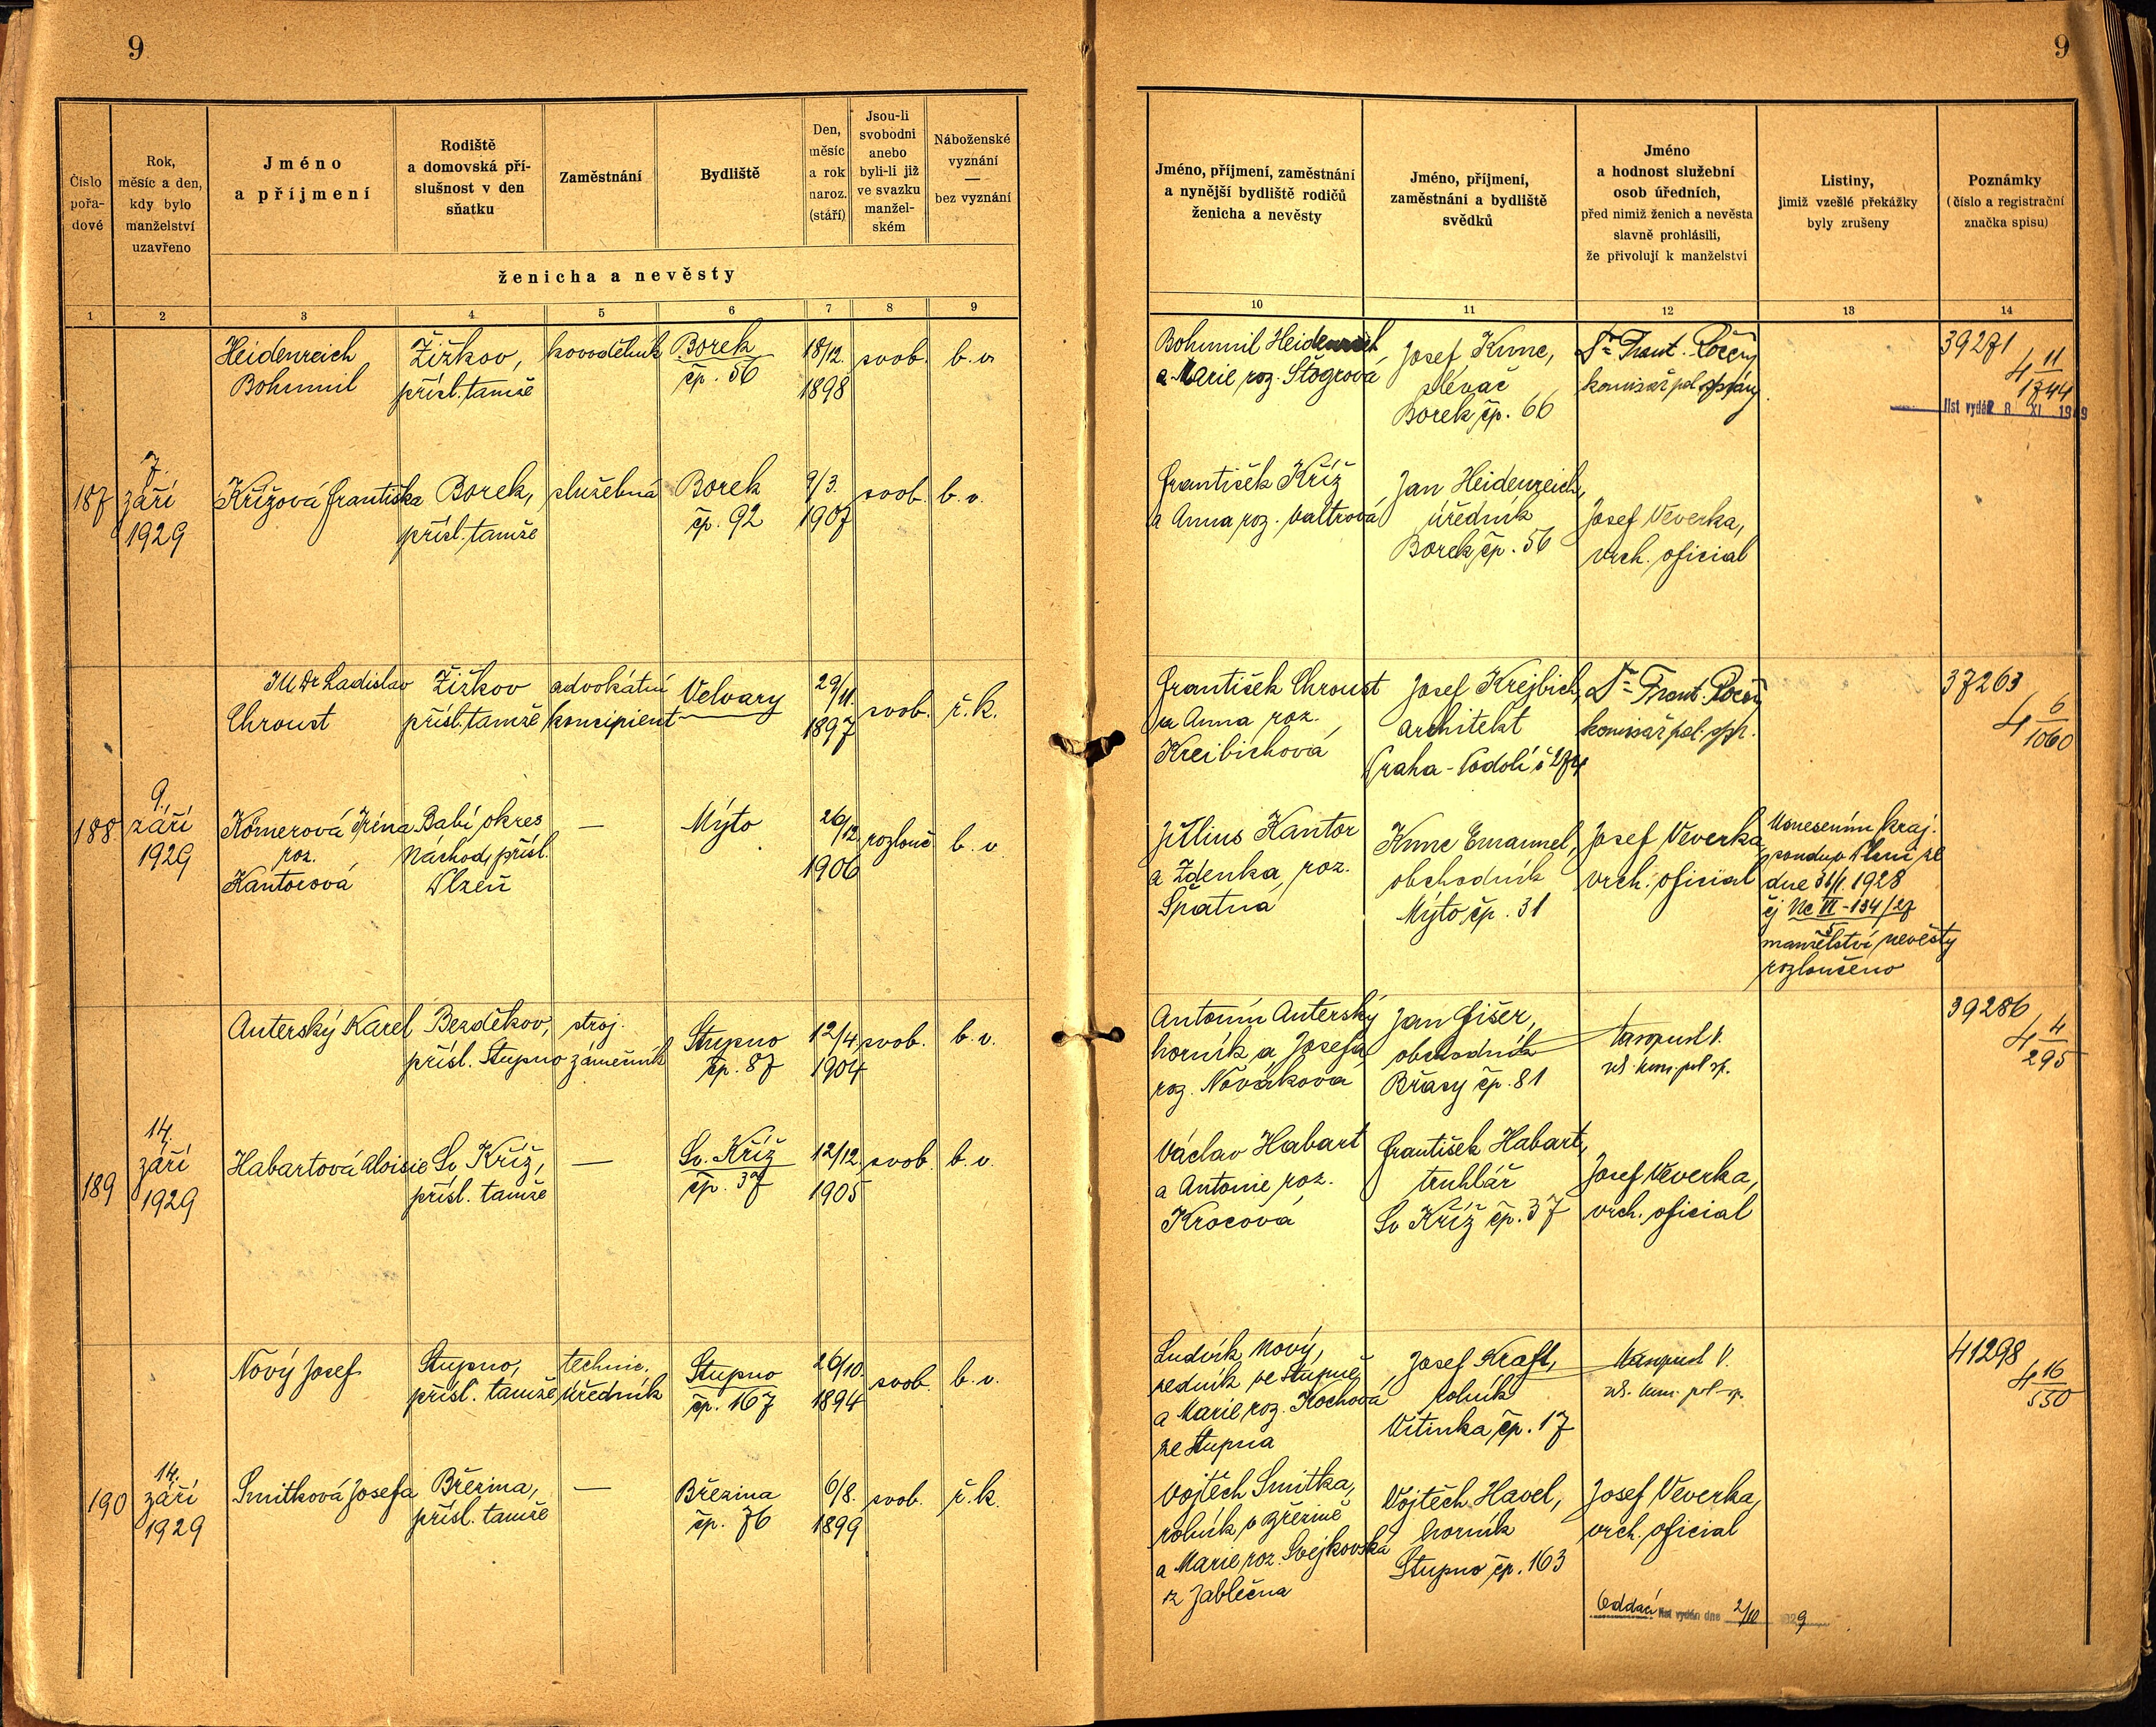 9
9
Číslo
pořa-
dové
Rok,
měsíc a den,
kdy bylo
manželství
uzavřeno
Jméno
a příjmení
Rodiště
a domovská pří-
slušnost v den
sňatku
Zaměstnání
Bydliště
Den,
měsíc
a rok
naroz.
(stáří)
Jsou-li
svobodni
anebo
byli-li již
ve svazku
manžel-
ském
Náboženské
vyznání
—
bez vyznání
ženicha a nevěsty
Jméno, příjmení, zaměstnání
a nynější bydliště rodičů
ženicha a nevěsty
Jméno, příjmení,
zaměstnání a bydliště
svědků
Jméno
a hodnost služební
osob úředních,
před nimiž ženich a nevěsta
slavně prohlásili,
že přivolují k manželství
Listiny,
jimiž vzešlé překážky
byly zrušeny
Poznámky
(číslo a registrační
značka spisu)
1 2 3 4 5 6 7 8 9
10 11 12 13 14
Heidenreich
Bohumil
Žižkov,
přísl. tamže
kovodělník
Borek
čp. 56
18/12.
1898
svob.
b. v.
Bohumil Heidenreich
a Marie roz. Štögrová
Josef Kunc,
slévač
Borek čp. 66
Dr Frant.
komisař pol. správy
39271
4 11
1744
list vydán 8 XI 19
187
7.
září
1929
Křížová Františka
Borek,
přísl. tamže
služebná
Borek
čp. 92
9/3.
1907
svob.
b. v.
František Kříž
a Anna roz. Valtrová
Jan Heidenreich,
úředník
Borek čp. 56
Josef Veverka,
vrch. oficial
JUDr Ladislav
Chroust
Žižkov
přísl. tamže
advokátní
koncipient
Velvary
29/11.
1897
svob.
ř. k.
František Chroust
a Anna roz.
Kreibichová
Josef Krejbich,
architekt
Praha-Podolí č 274
Dr Frant.
komisař pol. spr.
37263
4 6
1060
188.
9.
září
1929
Körnerová Iréna
roz.
Kantorová
Babí okres
Náchod, přísl.
Plzeň
—
Mýto
26/12
1906
rozlouč
b. v.
Július Kantor
a Zdenka roz.
Špatná
Kunc Emanuel,
obchodník
Mýto čp. 31
Josef Veverka
vrch. oficial
Usnesením kraj.
soudu v Plzni ze
dne 31/1. 1928
čj Nc VI-134/27
5
manželství nevěsty
rozloučeno
Auterský Karel
Bezděkov,
přísl. Stupno
stroj.
zámečník
Stupno
čp. 87
12/4.
1904
svob.
b. v.
Antonín Auterský
horník a Josefa
roz. Nováková
Jan Fišer,
obchodník
Břasy čp. 81
kom. pol. sp.
39286
4 4
295
189
14.
září
1929
Habartová Aloisie
Sv. Kříž,
přísl. tamže
—
Sv. Kříž
čp. 37
12/12.
1905
svob.
b. v.
Václav Habart
a Antonie roz.
Krocová
František Habart,
truhlář
Sv Kříž čp. 37
Josef Veverka,
vrch. oficial
Nový Josef
Stupno,
přísl. tamže
technic.
úředník
Stupno
čp. 167
26/10.
1894
svob.
b. v.
Ludvík Nový,
zedník ve Stupně
a Marie roz. Kochová
ze Stupna
Josef Kraft,
rolník
Vitinka čp. 17
kom. pol. sp.
41298
4 16
550
190
14.
září
1929
Smitková Josefa
Březina,
přísl. tamže
—
Březina
čp. 76
6/8.
1899
svob.
ř. k.
Vojtěch Smitka,
rolník v Březině
a Marie roz. Svejkovská
z Jablečna
Vojtěch Havel,
horník
Stupno čp. 163
Josef Veverka,
vrch. oficial
Oddací list vydán dne 2/10 1929